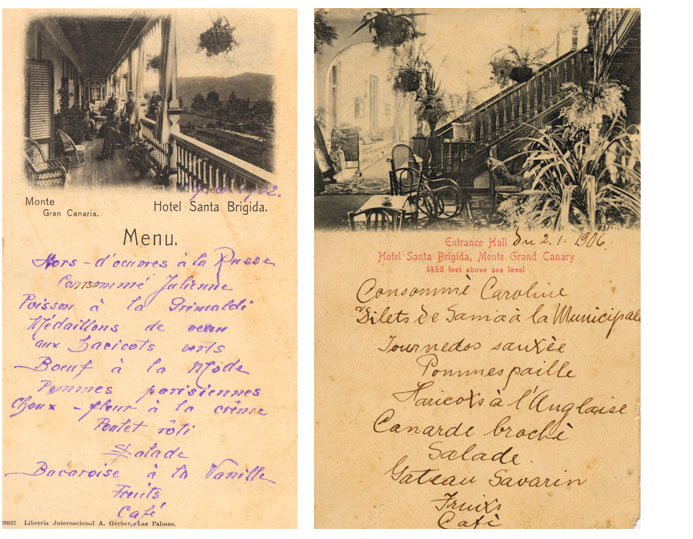 1902.
Monte
Gran Canaria.
Hotel Santa Brigida.
Menu.
Hors-d'oeuvres à la Russe
Consommé Julienne
Poisson à la Grimaldi
Médaillons de veau
aux Haricots verts
Boeuf à la Mode
Pommes parisiennes
Choux-fleur à la crême
Poulet rôti
Salade
Bavaroise à la Vanille
Fruits
Café
Libreria Internacional A. Gerber, Las Palmas.
Entrance Hall du 2.1.1906
Hotel Santa Brigida, Monte Grand Canary
1450 feet above sea level
Consommè Caroline
Filets de Sama à la Municipale
Tournedos sautèe
Pommes paille
Haricots à l'Anglaise
Canard broche
Salade
Gateau Savarin
Fruits
Cafè